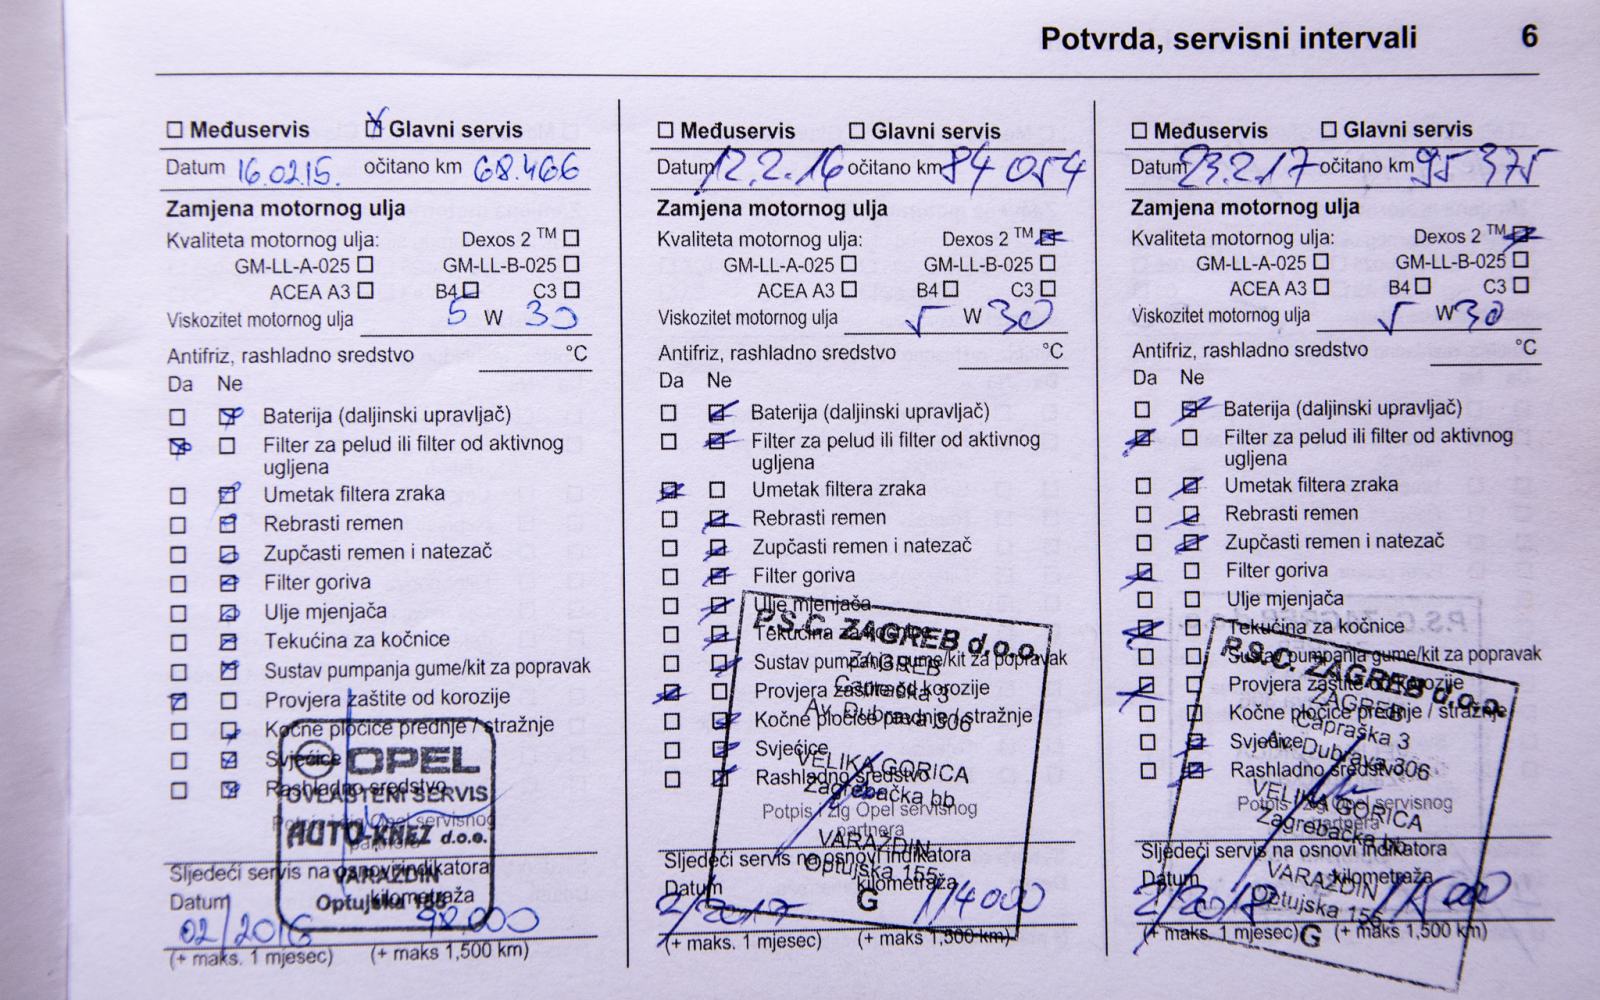 Potvrda, servisni intervali 6
☐ Međuservis ☒ Glavni servis
Datum 16.02.15. očitano km 68.466
Zamjena motornog ulja
Kvaliteta motornog ulja: Dexos 2 TM ☐
GM-LL-A-025 ☐ GM-LL-B-025 ☐
ACEA A3 ☐ B4 ☐ C3 ☐
Viskozitet motornog ulja 5 W 30
Antifriz, rashladno sredstvo °C
Da Ne
☐ ☒ Baterija (daljinski upravljač)
☒ ☐ Filter za pelud ili filter od aktivnog
ugljena
☐ ☒ Umetak filtera zraka
☐ ☒ Rebrasti remen
☐ ☒ Zupčasti remen i natezač
☐ ☒ Filter goriva
☐ ☒ Ulje mjenjača
☐ ☒ Tekućina za kočnice
☐ ☒ Sustav pumpanja gume/kit za popravak
☒ ☐ Provjera zaštite od korozije
☐ ☒ Kočne pločice prednje / stražnje
☐ ☒ Svjećice
☐ ☒ Rashladno sredstvo
Potpis i žig Opel servisnog
partnera
OPEL
OVLAŠTENI SERVIS
AUTO-KNEZ d.o.o.
VARAŽDIN
Optujska 155
Sljedeći servis na osnovi indikatora
Datum kilometraža
02/2016 98.000
(+ maks. 1 mjesec) (+ maks 1,500 km)
☐ Međuservis ☐ Glavni servis
Datum 12.2.16 očitano km 84 054
Zamjena motornog ulja
Kvaliteta motornog ulja: Dexos 2 TM ☒
GM-LL-A-025 ☐ GM-LL-B-025 ☐
ACEA A3 ☐ B4 ☐ C3 ☐
Viskozitet motornog ulja 5 W 30
Antifriz, rashladno sredstvo °C
Da Ne
☐ ☒ Baterija (daljinski upravljač)
☐ ☒ Filter za pelud ili filter od aktivnog
ugljena
☒ ☐ Umetak filtera zraka
☐ ☒ Rebrasti remen
☐ ☒ Zupčasti remen i natezač
☐ ☒ Filter goriva
☐ ☒ Ulje mjenjača
☐ ☒ Tekućina za kočnice
☐ ☒ Sustav pumpanja gume/kit za popravak
☒ ☐ Provjera zaštite od korozije
☐ ☒ Kočne pločice prednje / stražnje
☐ ☒ Svjećice
☐ ☒ Rashladno sredstvo
Potpis i žig Opel servisnog
partnera
P.S.C. ZAGREB d.o.o.
ZAGREB
Capraška 3
Av. Dubrava 306
VELIKA GORICA
Zagrebačka bb
VARAŽDIN
Optujska 155
G
Sljedeći servis na osnovi indikatora
Datum kilometraža
2/2017 114000
(+ maks. 1 mjesec) (+ maks 1,500 km)
☐ Međuservis ☐ Glavni servis
Datum 23.2.17 očitano km 95 375
Zamjena motornog ulja
Kvaliteta motornog ulja: Dexos 2 TM ☒
GM-LL-A-025 ☐ GM-LL-B-025 ☐
ACEA A3 ☐ B4 ☐ C3 ☐
Viskozitet motornog ulja 5 W 30
Antifriz, rashladno sredstvo °C
Da Ne
☐ ☒ Baterija (daljinski upravljač)
☒ ☐ Filter za pelud ili filter od aktivnog
ugljena
☐ ☒ Umetak filtera zraka
☐ ☒ Rebrasti remen
☐ ☒ Zupčasti remen i natezač
☒ ☐ Filter goriva
☐ ☐ Ulje mjenjača
☒ ☐ Tekućina za kočnice
☐ ☐ Sustav pumpanja gume/kit za popravak
☒ ☐ Provjera zaštite od korozije
☐ ☐ Kočne pločice prednje / stražnje
☐ ☒ Svjećice
☐ ☒ Rashladno sredstvo
Potpis i žig Opel servisnog
partnera
P.S.C. ZAGREB d.o.o.
ZAGREB
Capraška 3
Av. Dubrava 306
VELIKA GORICA
Zagrebačka bb
VARAŽDIN
Optujska 155
G
Sljedeći servis na osnovi indikatora
Datum kilometraža
2/2018
(+ maks. 1 mjesec) (+ maks 1,500 km)